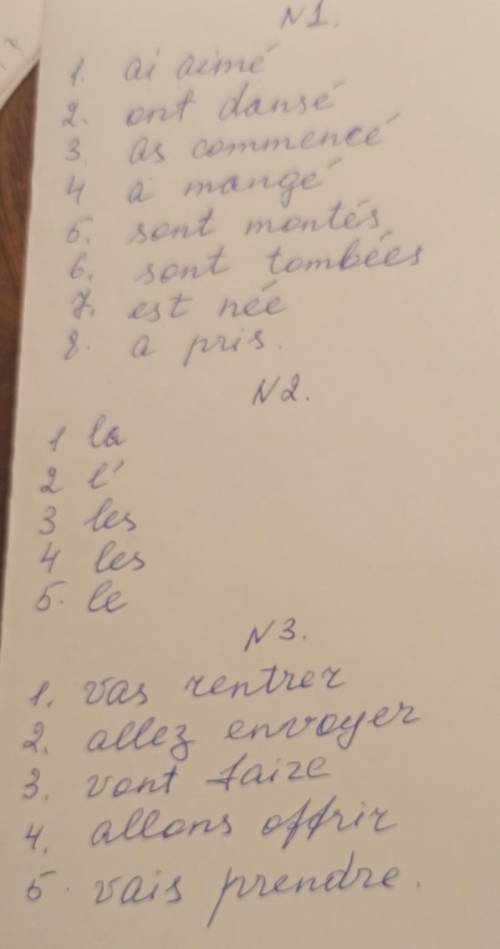 N1.
1. ai aimé
2. ont dansé
3. as commencé
4 a mangé
5. sont montés
6. sont tombées
7. est née
8. a pris.
N2.
1 la
2 l'
3 les
4 les
5. le
N3.
1. vas rentrer
2. allez envoyer
3. vont faire
4. allons offrir
5. vais prendre.